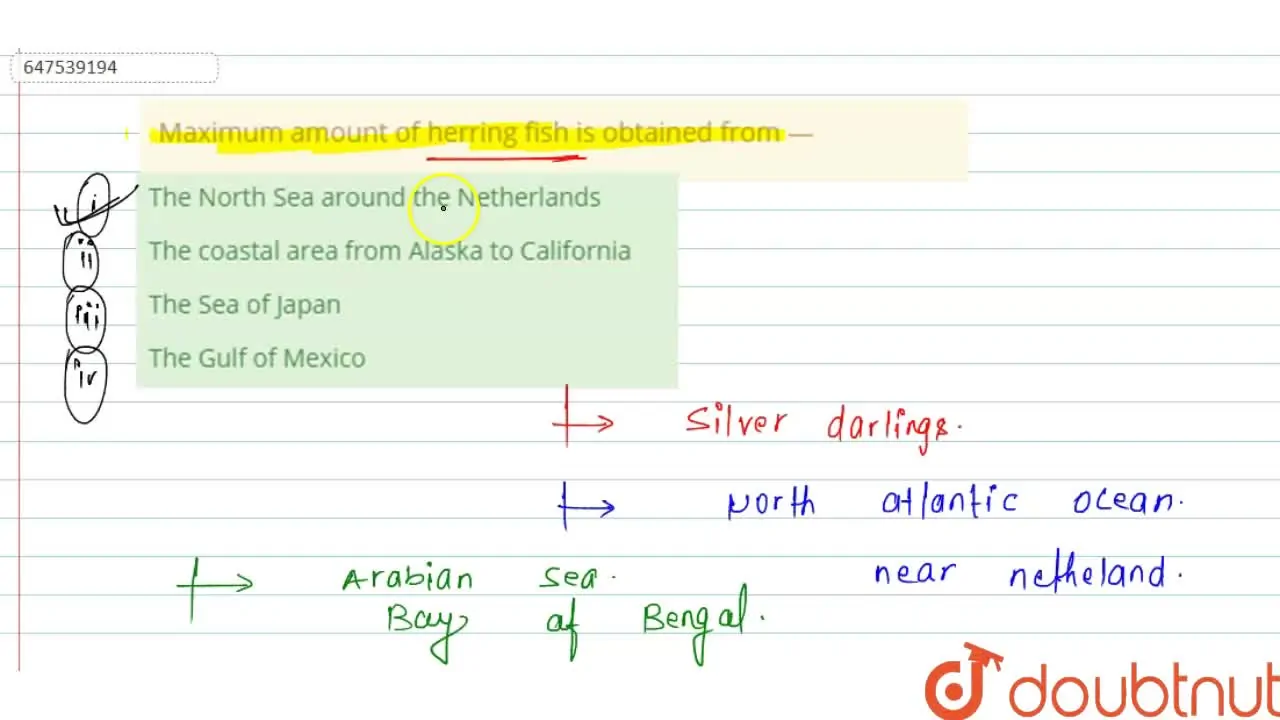 647539194
Maximum amount of herring fish is obtained from —
i The North Sea around the Netherlands
ii The coastal area from Alaska to California
iii The Sea of Japan
iv The Gulf of Mexico
Silver darlings.
North atlantic ocean.
near netheland.
Arabian sea.
Bay of Bengal.
doubtnut